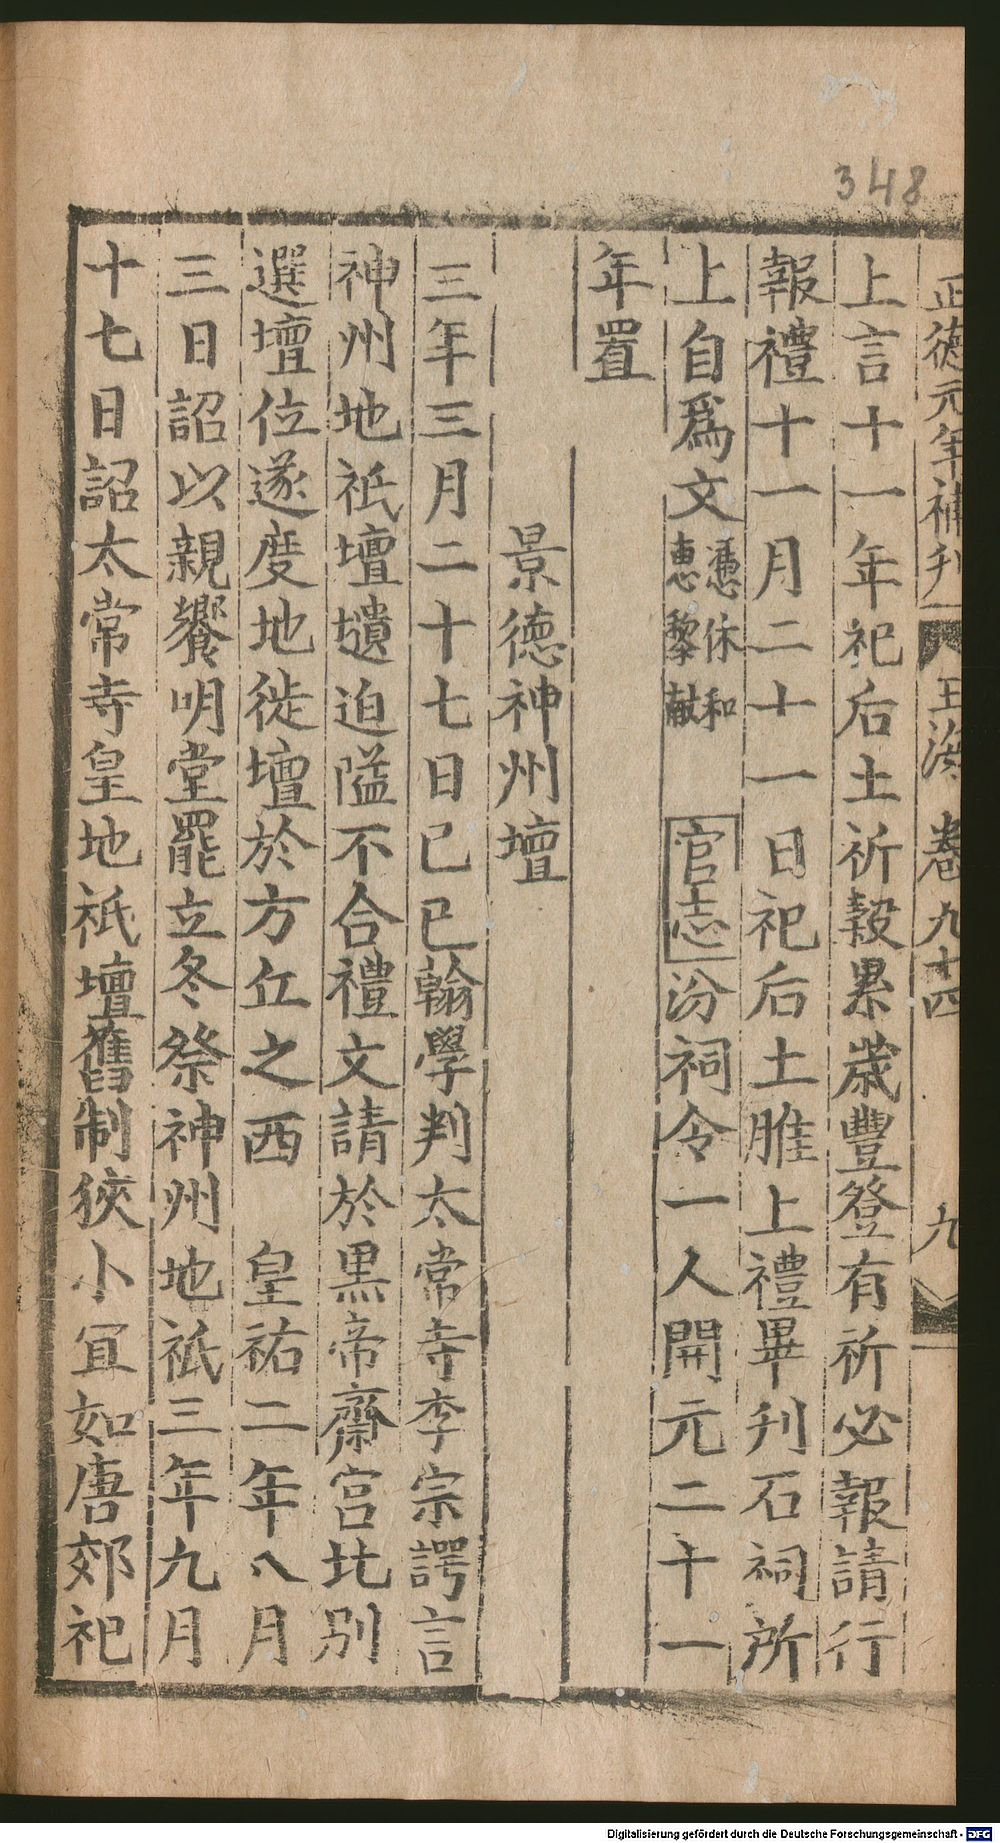 348
正德元年補刋 玉海卷九十四 九
上言十一年祀后土祈穀累歲豐登有祈必報請行
報禮十一月二十一日祀后土脽上禮畢刋石祠所
上自爲文憑休和惠黎獻 官志汾祠令一人開元二十一
年置
景德神州壇
三年三月二十七日已巳翰學判太常寺李宗諤言
神州地祇壇壝迫隘不合禮文請於黒帝齋宫北別
選壇位遂度地徙壇於方丘之西 皇祐二年八月
三日詔以親饗明堂罷立冬祭神州地祇三年九月
十七日詔太常寺皇地祇壇舊制狹小冝如唐郊祀
Digitalisierung gefördert durch die Deutsche Forschungsgemeinschaft - DFG